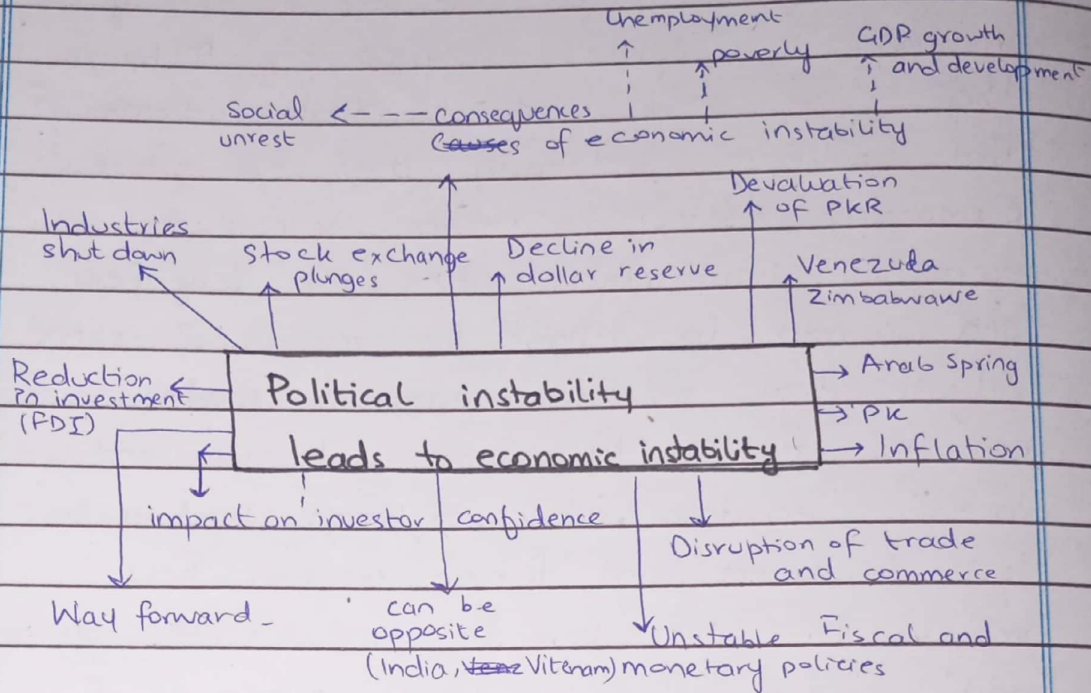 Unemployment
poverly
GDP growth
and development
Social <---consequences
unrest
Causes of economic instability
Devaluation
of PKR
Industries
shut down
Stock exchange
plunges
Decline in
dollar reserve
Venezuela
Zimbabwawe
Reduction
in investment
(FDI)
Political instability
leads to economic instability
Arab Spring
PK
Inflation
impact on investor confidence
Disruption of trade
and commerce
Way forward-
can be
opposite
(India, Venz Vitenam)
Unstable Fiscal and
monetary policies